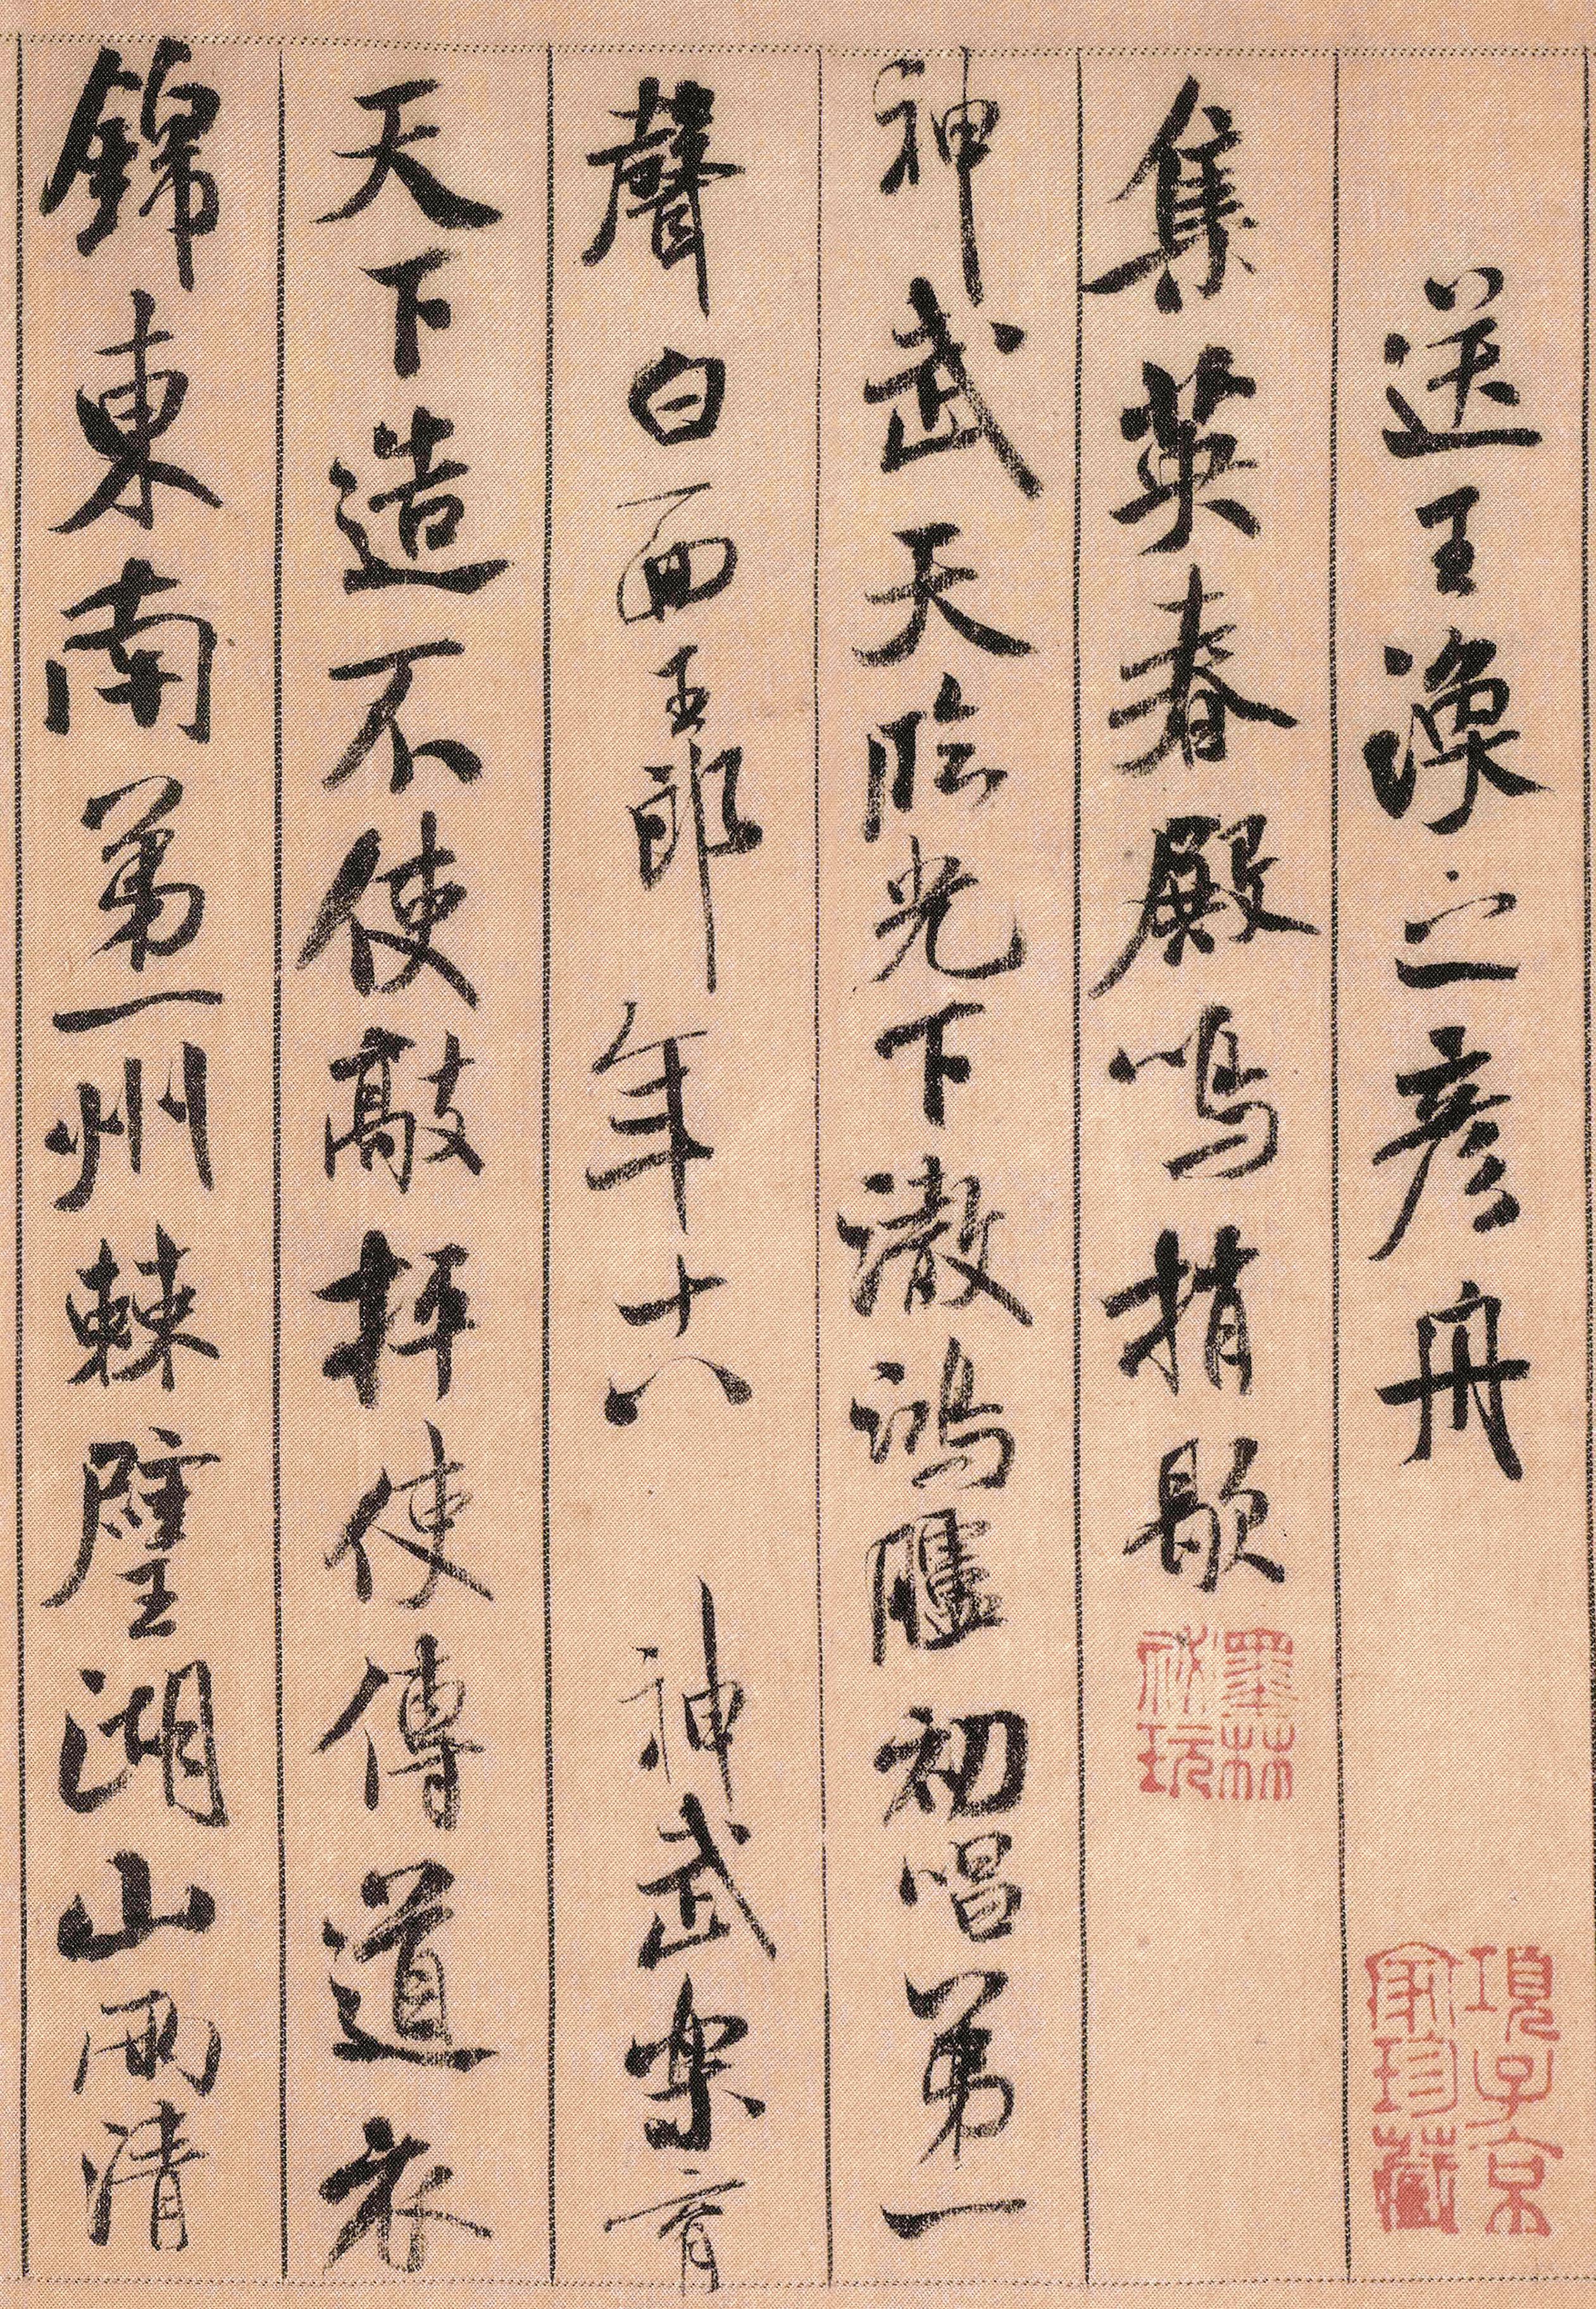 送王渙之彥舟
集英春殿鳴捎歇
神武天臨光下澈鴻臚初唱第一
聲白面王郎年十八神武樂育
天下造不使敲抨使傳道衣
錦東南第一州棘璧湖山兩清
墨林
祕玩
項子京
家珍藏